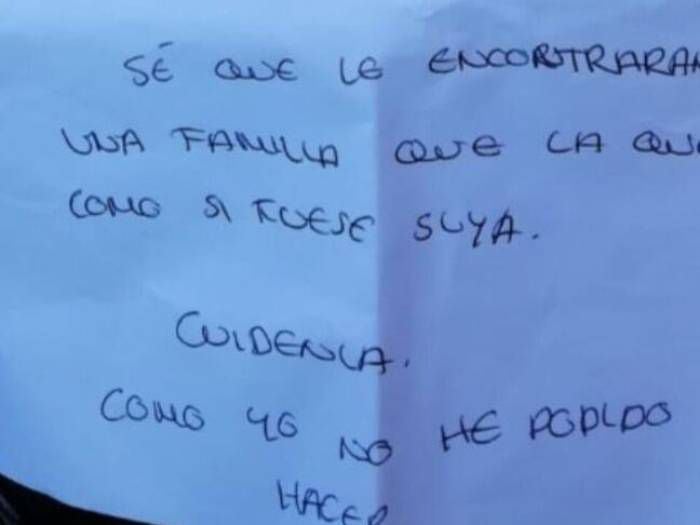 SÉ QUE LE ENCONTRARAN
UNA FAMILIA QUE LA QU
COMO SI FUESE SUYA.
CUIDENLA.
COMO YO NO HE PODIDO
HACER